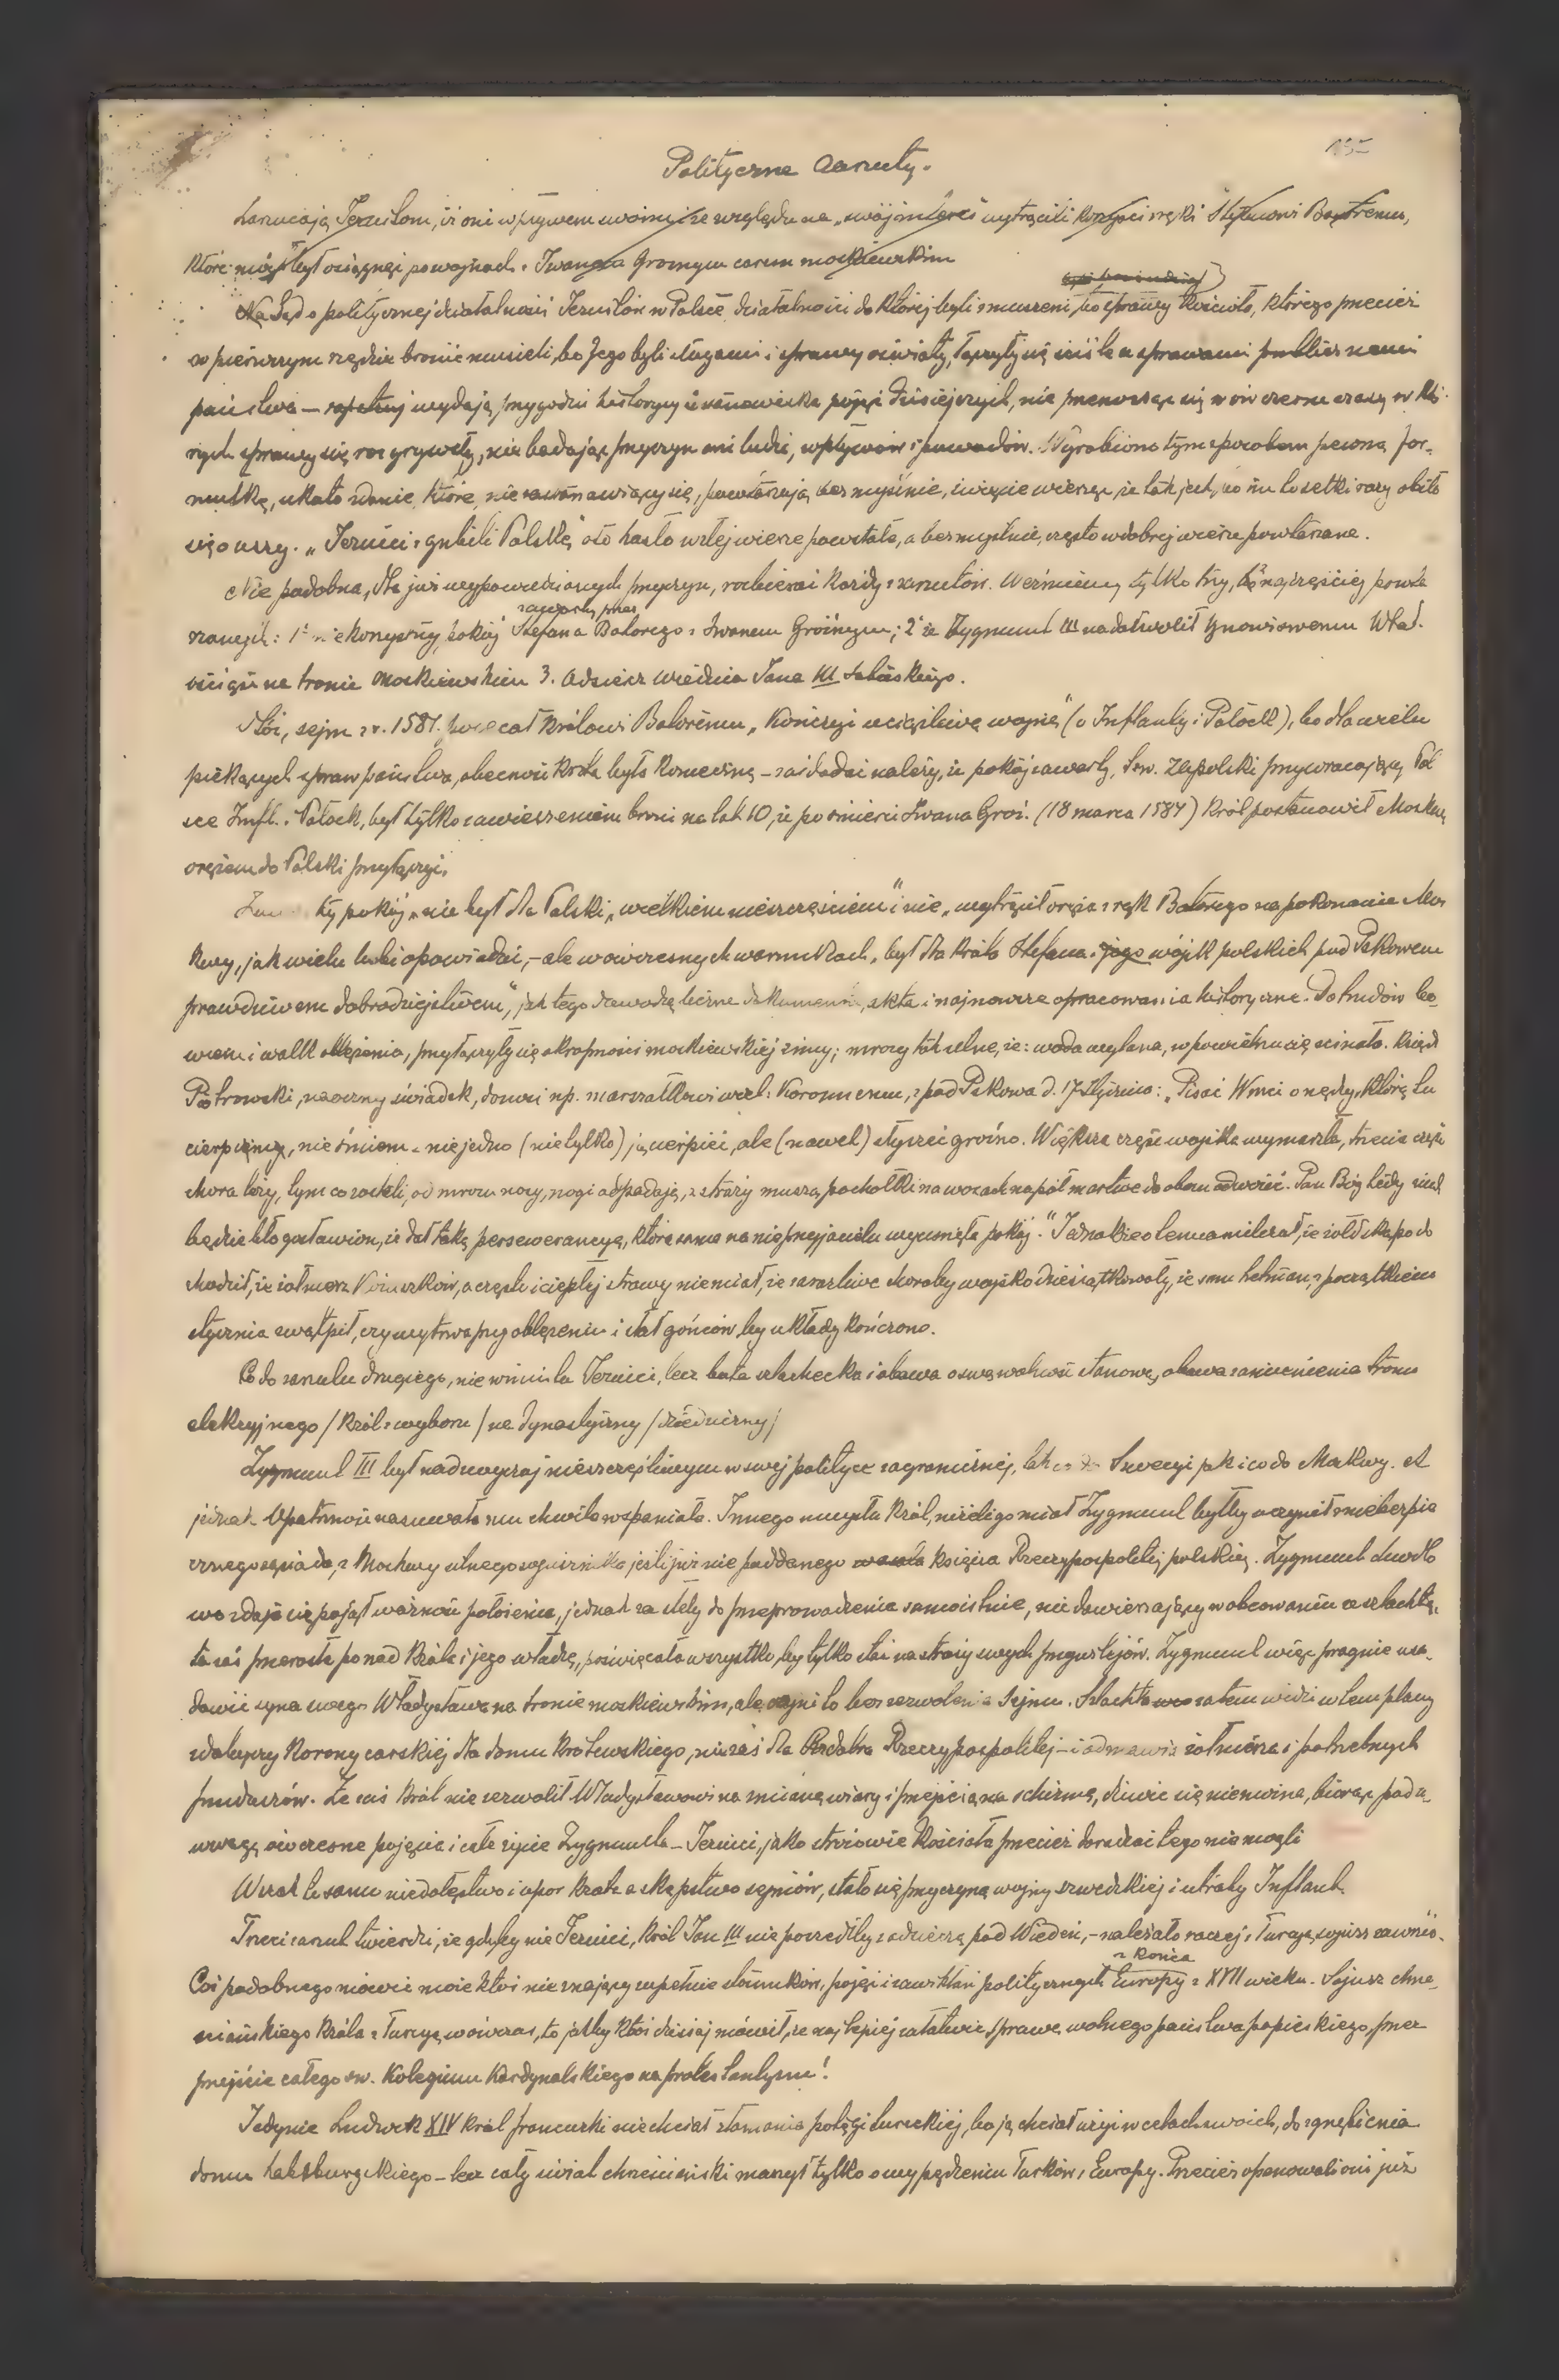 Polityczne zarzuty.
Zarzucają Jezuitom, iż oni wpływem swoim, ze względu na „swój interes" wytrącili korzyści z ręki Stefanowi Batoremu,
które mógł był osiągnąć po wojnach z Iwanem Groźnym carem moskiewskim
Sąd o politycznej działalności Jezuitów w Polsce, działalności do której byli zmuszeni, bo sprawy kościoła, którego przecież
w pierwszym rzędzie bronić musieli, bo Jego byli sługami i sprawy oświaty, łączyły się ściśle ze sprawami publicznemi
państwa — wydają przygodni historycy z stanowiska pojęć dzisiejszych, nie przenosząc się w ówczesne czasy w któ-
rych sprawy się rozgrywały, nie badając przyczyn ani ludzi, wpływów i powodów. Wyrobiono tym sposobem pewną for-
mułkę, utarte zdanie, które, nie zastanawiający się, powtarzają bezmyślnie, święcie wierząc, że tak jest, bo im to setki razy obiło
się o uszy. „Jezuici zgubili Polskę" oto hasło w złej wierze powstałe, a bezmyślnie, często w dobrej wierze powtarzane.
Nie podobna, dla już wypowiedzianych przyczyn, rozbierać każdy z zarzutów. Weźmiemy tylko trzy, najczęściej powta
rzanych: 1° niekorzystny pokój zawarty przez Stefana Batorego z Iwanem Groźnym; 2° że Zygmunt III nie dozwolił synowi swemu Wład.
osiąść na tronie moskiewskim 3. Odsiecz Wiednia Jana III Sobieskiego.
Otóż, sejm z r. 1581. polecał królowi Batoremu „kończyć uciążliwą wojnę" (o Inflanty i Połock), bo dla wielu
piekących spraw państwa, obecność króla była konieczną – zaś dodać należy, że pokój zawarty, t.zw. Zapolski przywracający Pol
sce Infl. i Połock, był tylko zawieszeniem broni na lat 10, że po śmierci Iwana Groź. (18 marca 1584) król postanowił Moskwę
orężem do Polski przyłączyć.
ty pokój „nie był dla Polski „wielkiem nieszczęściem" i nie „wytrącił oręża z rąk Batorego na pokonanie Mos
kwy, jak wielu lubi opowiadać, – ale w ówczesnych warunkach, był dla króla Stefana i jego wójsk polskich pod Pskowem
prawdziwem dobrodziejstwem", jak tego dowodzą liczne dokumenta, akta i najnowsze opracowania historyczne. Do trudów bo-
wiem i walk oblężenia, przyłączyły się okropności moskiewskiej zimy; mrozy tak silne, że: woda wylana, w powietrzu się ścinała. Ksiądz
Piotrowski, naoczny świadek, donosi np. marszałkowi wiel. Koronnemu, z pod Pskowa d. 17 Stycznia: „Pisać Wmci o nędzy, którą tu
cierpiemy, nie śmiem. niejedno (nietylko) ją cierpieć, ale (nawet) słyszeć groźno. Większa część wojska wymarzła, trzecia część
chora leży, tym co zostali, od mrozu nosy, nogi odpadają, z straży muszą pachołki na wozach napół martwe do obozu odwozić. Pan Bóg tedy niech
będzie błogosławion, iż dał taką perseweracyą, która sama na nieprzyjacielu wycisnęła pokój." Jednakże o tem zamilczał, że żołd skąpo do
chodził, że żołnierz kożuszków, a często i ciepłej strawy nie miał, że zaraźliwe choroby wojsko dziesiątkowały, że sam hetman, z początkiem
stycznia zwątpił, czy wytrwa przy oblężeniu i słał gońców, by układy kończono.
Co do zarzutu drugiego, nie winni tu Jezuici, lecz buta szlachecka i obawa o swą wolność stanową, obawa zamienienia tronu
elekcyjnego /król z wyboru/ na dynastyczny /dziedziczny/
Zygmunt III był nadzwyczaj nieszczęśliwym w swej polityce zagranicznej, tak co do Szwecyi jak i co do Moskwy. A
jednak Opatrzność nasuwała mu chwila wspaniała. Innego umysłu król, niżeli go miał Zygmunt byłby uczynił z niebezpie
cznego sąsiada, z Moskwy silnego sojusznika jeśli już nie poddanego księcia Rzeczypospolitej polskiej. Zygmunt Ludwo
wo zdaje się pojął ważność położenia, jednak za słaby do przeprowadzenia samoistnie, nie dowierzający w obcowaniu ze szlachtą,
ta zaś przerosła ponad króla i jego władzę, poświęcała wszystko, by tylko stać na straży swych przywilejów. Zygmunt więc pragnie usa-
dowić syna swego Władysława na tronie moskiewskim, ale czyni to bez zezwolenia Sejmu. Szlachta zatem widzi w tem plany
zdobyczy korony carskiej dla domu królewskiego, nie zaś dla dobra Rzeczypospolitej – i odmawia żołnierza i potrzebnych
funduszów. Że zaś król nie zezwolił Władysławowi na zmianę wiary i przejście na schizmę, dziwić się nie można, biorąc pod u-
uwagę ówczesne pojęcia i całe życie Zygmunta – Jezuici, jako stróżowie Kościoła przecież doradzać tego nie mogli
Wszak to samo niedołęstwo i upór króla a skąpstwo sejmów, stało się przyczyną wojny szwedzkiej i utraty Inflant.
Trzeci zarzut twierdzi, że gdyby nie Jezuici, król Jan III nie poszedłby z odsieczą pod Wiedeń, – należało raczej z Turcyą sojusz zawrzeć.
Coś podobnego mówić może ktoś nie znający zupełnie stosunków, pojęć i zawikłań politycznych Europy z końca XVII wieku. Sojusz chrze-
ściańskiego króla z Turcyą wówczas, to jakby ktoś dzisiaj mówił, że najlepiej załatwić sprawę wolnego państwa papieskiego, przez
przejście całego św. Kolegium Kardynalskiego na protestantyzm!
Jedynie Ludwik XIV król francuski nie chciał złamania potęgi tureckiej, bo ją chciał użyć w celach swoich, do zgnębienia
domu habsburgskiego – lecz cały świat chrześciański marzył tylko o wypędzeniu Turków z Europy. Przecież opanowali oni już